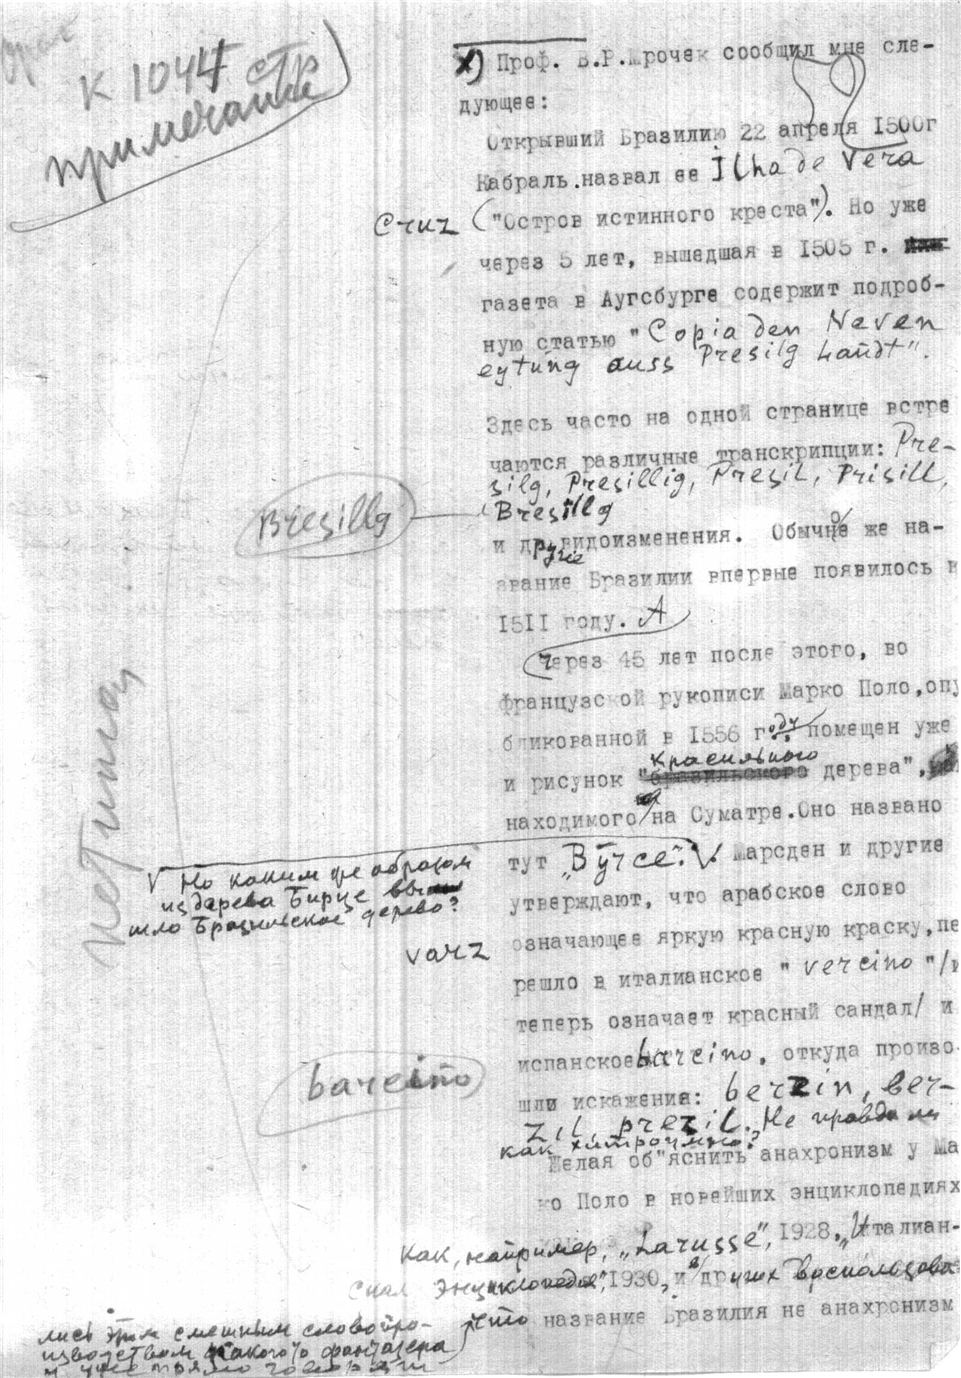 К 1044 стр
примечание
х) Проф. В.Р.Мрочек сообщил мне сле-
дующее:
Открывший Бразилию 22 апреля 1500г
Кабраль.назвал ее Ilha de Vera
Cruz ("Остров истинного креста"). Но уже
через 5 лет, вышедшая в 1505 г.
газета в Аугсбурге содержит подроб-
ную статью "Copia den Neven
eytung auss Presilg Landt".
Здесь часто на одной странице встре
чаются различные транскрипции: Pre-
silg, Presillig, Presil, Prisill,
Bresillg
Bresillg
и другие видоизменения. Обычно же на-
звание Бразилии впервые появилось в
1511 году. А
Через 45 лет после этого, во
французской рукописи Марко Поло,опу
бликованной в 1556 году помещен уже
и рисунок "красильного дерева",
находимого на Суматре.Оно названо
тут „Bÿrce". V. Марсден и другие
V Но каким же образом
из дерева Бирце вы
шло Бразильское дерево?
утверждают, что арабское слово
varz
означающее яркую красную краску,пе
решло в италианское "vercino"/и
теперь означает красный сандал/ и
испанское barcino, откуда произо-
barcino
шли искажения: berzin, ber-
zil, prezil. Не правда ли
как хитроумно?
Желая об"яснить анахронизм у Ма
ко Поло в новейших энциклопедиях
как, например, „Larusse", 1928, „Италиан-
ская Энциклопедия", 1930, и в других воспользова
лись этим смешным словопро-
изводством какого то фантазера
и уже прямо говорят
что название Бразилия не анахронизм
нетипог